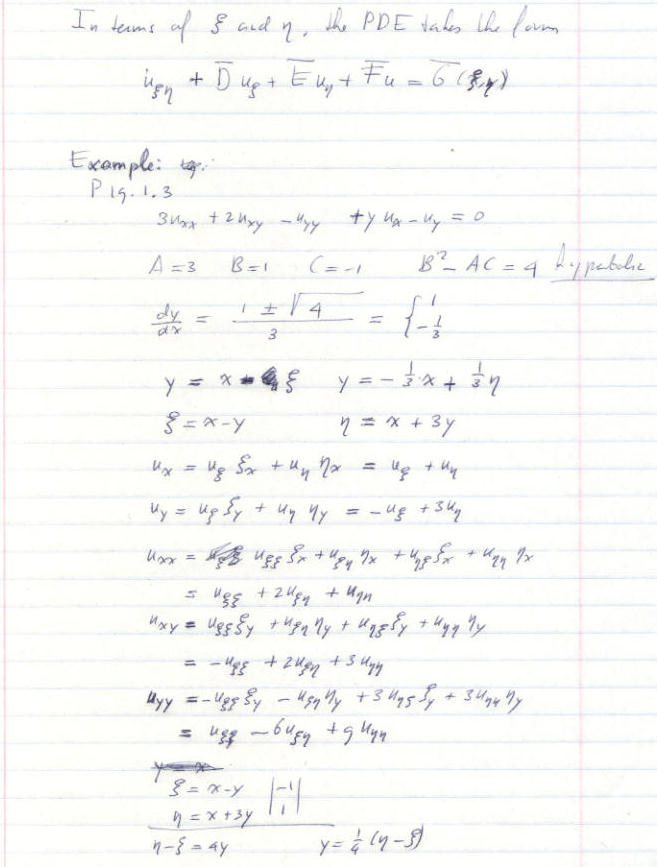 In terms of ξ and η, the PDE takes the form
u_ξη + D̅ u_ξ + E̅ u_η + F̅ u = G̅ (ξ,η)
Example:
P 19. 1.3
3u_xx + 2u_xy - u_yy + y u_x - u_y = 0
A = 3 B = 1 C = -1 B² - AC = 4 hyperbolic
dy/dx = (1 ± √4)/3 = { 1, -1/3
y = x - ξ y = -1/3 x + 1/3 η
ξ = x - y η = x + 3y
u_x = u_ξ ξ_x + u_η η_x = u_ξ + u_η
u_y = u_ξ ξ_y + u_η η_y = -u_ξ + 3u_η
u_xx = u_ξξ ξ_x + u_ξη η_x + u_ηξ ξ_x + u_ηη η_x
= u_ξξ + 2u_ξη + u_ηη
u_xy = u_ξξ ξ_y + u_ξη η_y + u_ηξ ξ_y + u_ηη η_y
= -u_ξξ + 2u_ξη + 3u_ηη
u_yy = -u_ξξ ξ_y - u_ξη η_y + 3u_ηξ ξ_y + 3u_ηη η_y
= u_ξξ - 6u_ξη + 9u_ηη
ξ = x - y |-1|
η = x + 3y |1|
η - ξ = 4y y = 1/4 (η - ξ)